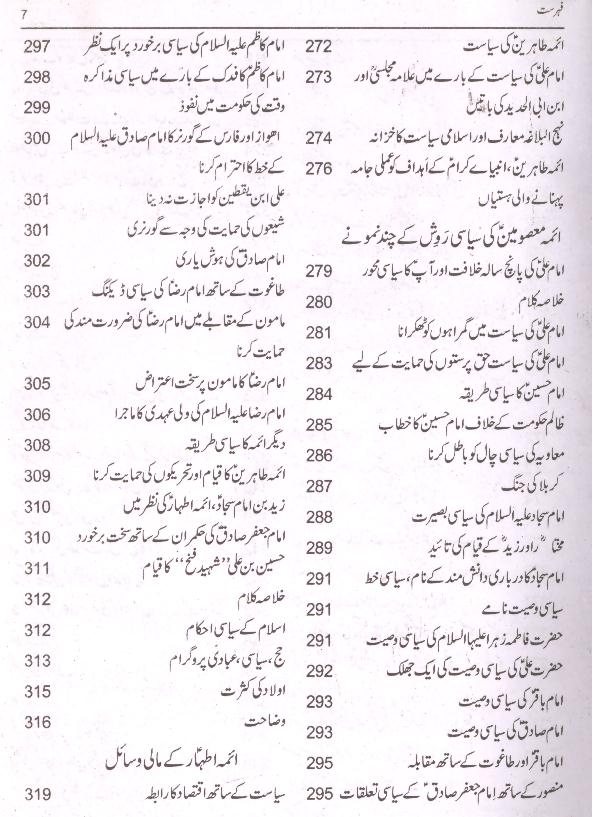 فہرست
7
ائمہ طاہرینؑ کی سیاست 272
امام علیؑ کی سیاست کے بارے میں علامہ مجلسیؒ اور 273
ابن ابی الحدید کی باتیں
نہج البلاغہ معارف اور اسلامی سیاست کا خزانہ 274
ائمہ طاہرینؑ، انبیائے کرامؑ کے اہداف کو عملی جامہ 276
پہنانے والی ہستیاں
ائمہ معصومینؑ کی سیاسی رَوِش کے چند نمونے
امام علیؑ کی پانچ سالہ خلافت اور آپؑ کا سیاسی محور 279
خلاصہ کلام 280
امام علیؑ کی سیاست میں گمراہوں کو ٹھکرانا 281
امام علیؑ کی سیاست حق پرستوں کی حمایت کے لیے 283
امام حسینؑ کا سیاسی طریقہ 284
ظالم حکومت کے خلاف امام حسینؑ کا خطاب 285
معاویہ کی سیاسی چال کو باطل کرنا 286
کربلا کی جنگ 287
امام سجاد علیہ السلام کی سیاسی بصیرت 288
اور زیدؒ کے قیام کی تائید 289
امام سجادؑ کا درباری دانش مند کے نام، سیاسی خط 291
سیاسی وصیت نامے 291
حضرت فاطمہ زہرا علیہا السلام کی سیاسی وصیت 291
حضرت علیؑ کی سیاسی وصیت کی ایک جھلک 292
امام باقرؑ کی سیاسی وصیت 293
امام صادقؑ کی سیاسی وصیت 293
امام باقرؑ اور طاغوت کے ساتھ مقابلہ 295
منصور کے ساتھ امام جعفر صادقؑ کے سیاسی تعلقات 295
امام کاظم علیہ السلام کی سیاسی برخورد پر ایک نظر 297
امام کاظمؑ کا فدک کے بارے میں سیاسی مذاکرہ 298
وقت کی حکومت میں نفوذ 299
اھواز اور فارس کے گورنر کا امام صادق علیہ السلام 300
کے خط کا احترام کرنا
علی ابن یقطین کو اجازت نہ دینا 301
شیعوں کی حمایت کی وجہ سے گورنری 301
امام صادقؑ کی ہوش یاری 302
طاغوت کے ساتھ امام رضاؑ کی سیاسی ڈیلنگ 303
مامون کے مقابلے میں امام رضاؑ کی ضرورت مند کی 304
حمایت کرنا
امام رضاؑ کا مامون پر سخت اعتراض 305
امام رضا علیہ السلام کی ولی عہدی کا ماجرا 306
دیگر ائمہ کا سیاسی طریقہ 308
ائمہ طاہرینؑ کا قیام اور تحریکوں کی حمایت کرنا 309
زید بن امام سجادؑ، ائمہ اطہارؑ کی نظر میں 310
امام جعفر صادقؑ کی حکمران کے ساتھ سخت برخورد 310
حسین بن علی ”شہید فخ“ کا قیام 311
خلاصہ کلام 312
اسلام کے سیاسی احکام 312
حج، سیاسی، عبادی پروگرام 313
اولاد کی کثرت 315
وضاحت 316
ائمہ اطہارؑ کے مالی وسائل
سیاست کے ساتھ اقتصاد کا رابطہ 319